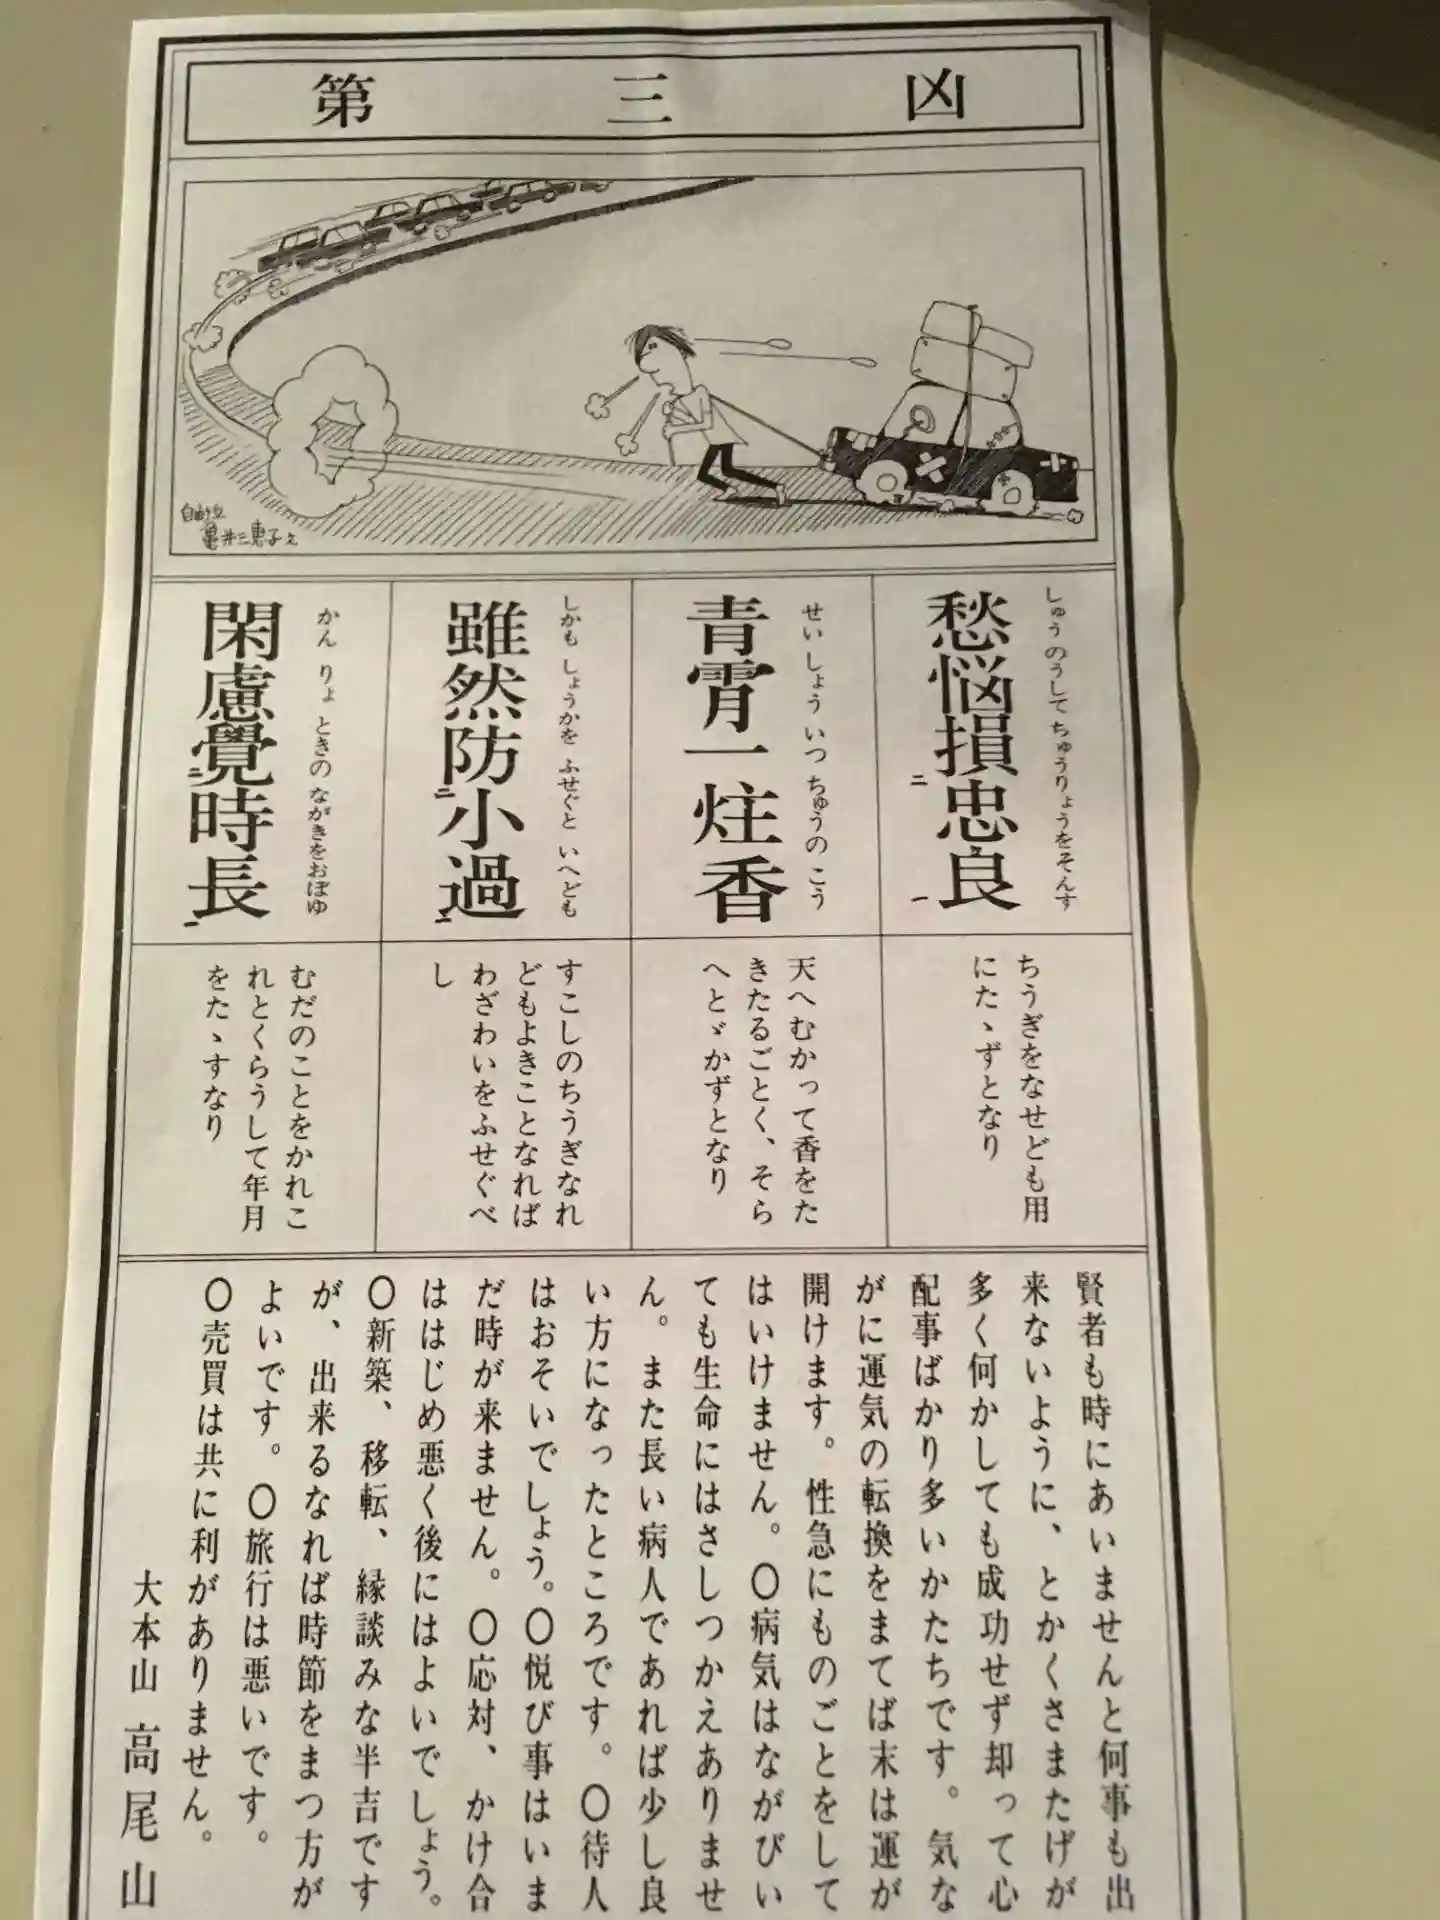 第三凶
自由ヶ丘
亀井三恵子え
しゅうのうして ちゅうりょうをそんす
愁悩損忠良
二
一
せいしょう いつ ちゅうの こう
青霄一炷香
しかも しょうかを ふせぐと いへども
雖然防小過
二
一
かん りょ ときの ながきをおぼゆ
閑慮覺時長
二
一
ちうぎをなせども用
にたゝずとなり
天へむかって香をた
きたるごとく、そら
へとゞかずとなり
すこしのちうぎなれ
どもよきことなれば
わざわいをふせぐべ
し
むだのことをかれこ
れとくらうして年月
をたゝすなり
賢者も時にあいませんと何事も出
来ないように、とかくさまたげが
多く何かしても成功せず却って心
配事ばかり多いかたちです。気な
がに運気の転換をまてば末は運が
開けます。性急にものごとをして
はいけません。〇病気はながびい
ても生命にはさしつかえありませ
ん。また長い病人であれば少し良
い方になったところです。〇待人
はおそいでしょう。〇悦び事はいま
だ時が来ません。〇応対、かけ合
ははじめ悪く後にはよいでしょう。
〇新築、移転、縁談みな半吉です
が、出来るなれば時節をまつ方が
よいです。〇旅行は悪いです。
〇売買は共に利がありません。
大本山 高尾山